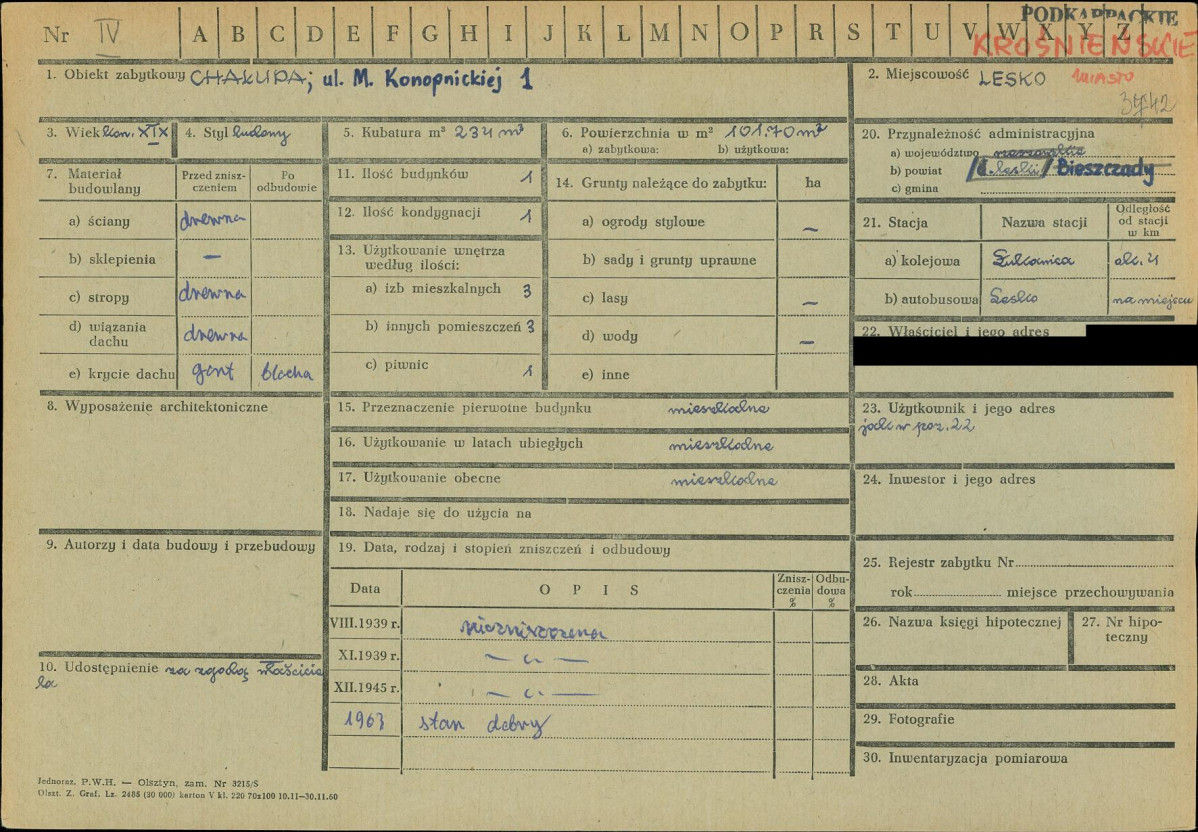 Nr IV A B C D E F G H I J K L M N O P R S T U V W X Y Z
PODKARPACKIE
KROŚNIEŃSKIE
1. Obiekt zabytkowy CHAŁUPA; ul. M. Konopnickiej 1
2. Miejscowość LESKO MIASTO
3. Wiek kon. XIX
4. Styl ludowy
5. Kubatura m³ 234 m³
6. Powierzchnia w m² 101.70 m²
a) zabytkowa: b) użytkowa:
7. Materiał budowlany
Przed znisz-
czeniem
Po
odbudowie
a) ściany drewna
b) sklepienia —
c) stropy drewna
d) wiązania
dachu drewna
e) krycie dachu gont blacha
8. Wyposażenie architektoniczne
9. Autorzy i data budowy i przebudowy
10. Udostępnienie za zgodą właścicie
la
11. Ilość budynków 1
12. Ilość kondygnacji 1
13. Użytkowanie wnętrza
według ilości:
a) izb mieszkalnych 3
b) innych pomieszczeń 3
c) piwnic 1
14. Grunty należące do zabytku: ha
a) ogrody stylowe —
b) sady i grunty uprawne
c) lasy —
d) wody —
e) inne
15. Przeznaczenie pierwotne budynku mieszkalne
16. Użytkowanie w latach ubiegłych mieszkalne
17. Użytkowanie obecne mieszkalne
18. Nadaje się do użycia na
19. Data, rodzaj i stopień zniszczeń i odbudowy
Data O P I S Znisz-
czenia
% Odbu-
dowa
%
VIII.1939 r. niezniszczona
XI.1939 r. — „ —
XII.1945 r. — „ —
1963 stan dobry
20. Przynależność administracyjna
a) województwo rzeszowskie
b) powiat Leski Bieszczady
c) gmina
21. Stacja Nazwa stacji Odległość
od stacji
w km
a) kolejowa Łukawica ok. 4
b) autobusowa Lesko na miejscu
22. Właściciel i jego adres
23. Użytkownik i jego adres
jak w poz. 22
24. Inwestor i jego adres
25. Rejestr zabytku Nr
rok miejsce przechowywania
26. Nazwa księgi hipotecznej
27. Nr hipo-
teczny
28. Akta
29. Fotografie
30. Inwentaryzacja pomiarowa
Jednoraz. P.W.H. — Olsztyn, zam. Nr 3215/S
Olszt. Z. Graf. Lz. 2486 (30 000) karton V kl. 220 70x100 10.11—30.11.60